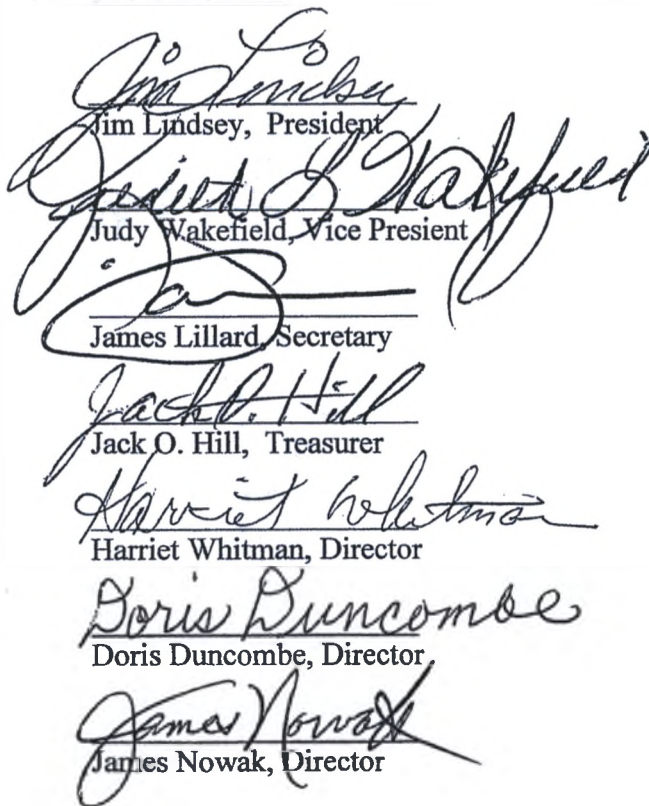 Jim Lindsey
Jim Lindsey, President
Judith L Wakefield
Judy Wakefield, Vice Presient
James Lillard, Secretary
Jack O. Hill
Jack O. Hill, Treasurer
Harriet Whitman
Harriet Whitman, Director
Doris Duncombe
Doris Duncombe, Director
James Nowak
James Nowak, Director